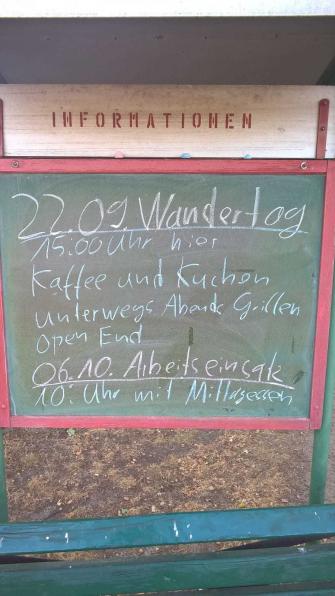 INFORMATIONEN
22.09 Wandertag
15:00 Uhr hier
Kaffee und Kuchen
unterwegs Abends Grillen
open End
06.10. Arbeitseinsatz
10: Uhr mit Mittagessen